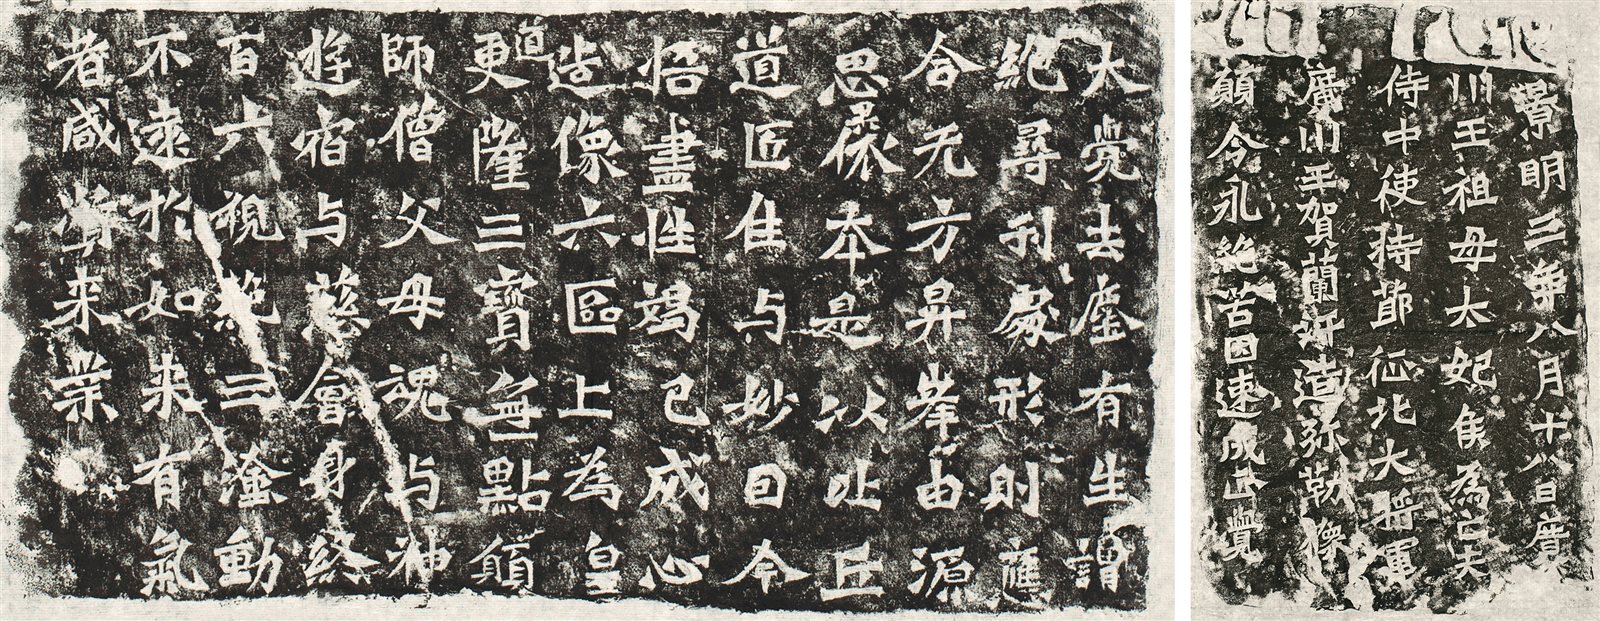 景明三年八月十八日廣
川王祖母太妃侯為亡夫
侍中使持節征北大將軍
廣川王賀蘭汗造弥勒像
願令永絶苦因速成正覺
大覺去塵有生謂
絶尋刊處形則應
合无方昇峯由源
思果依本是以比丘
道匠住与妙因今
悟盡性竭己成心
造像六區上為皇
道更隆三寶無點願
師僧父母魂与神
遊宿与慈會身終
百六視絶三塗動
不遠於如来有氣
者咸資来業